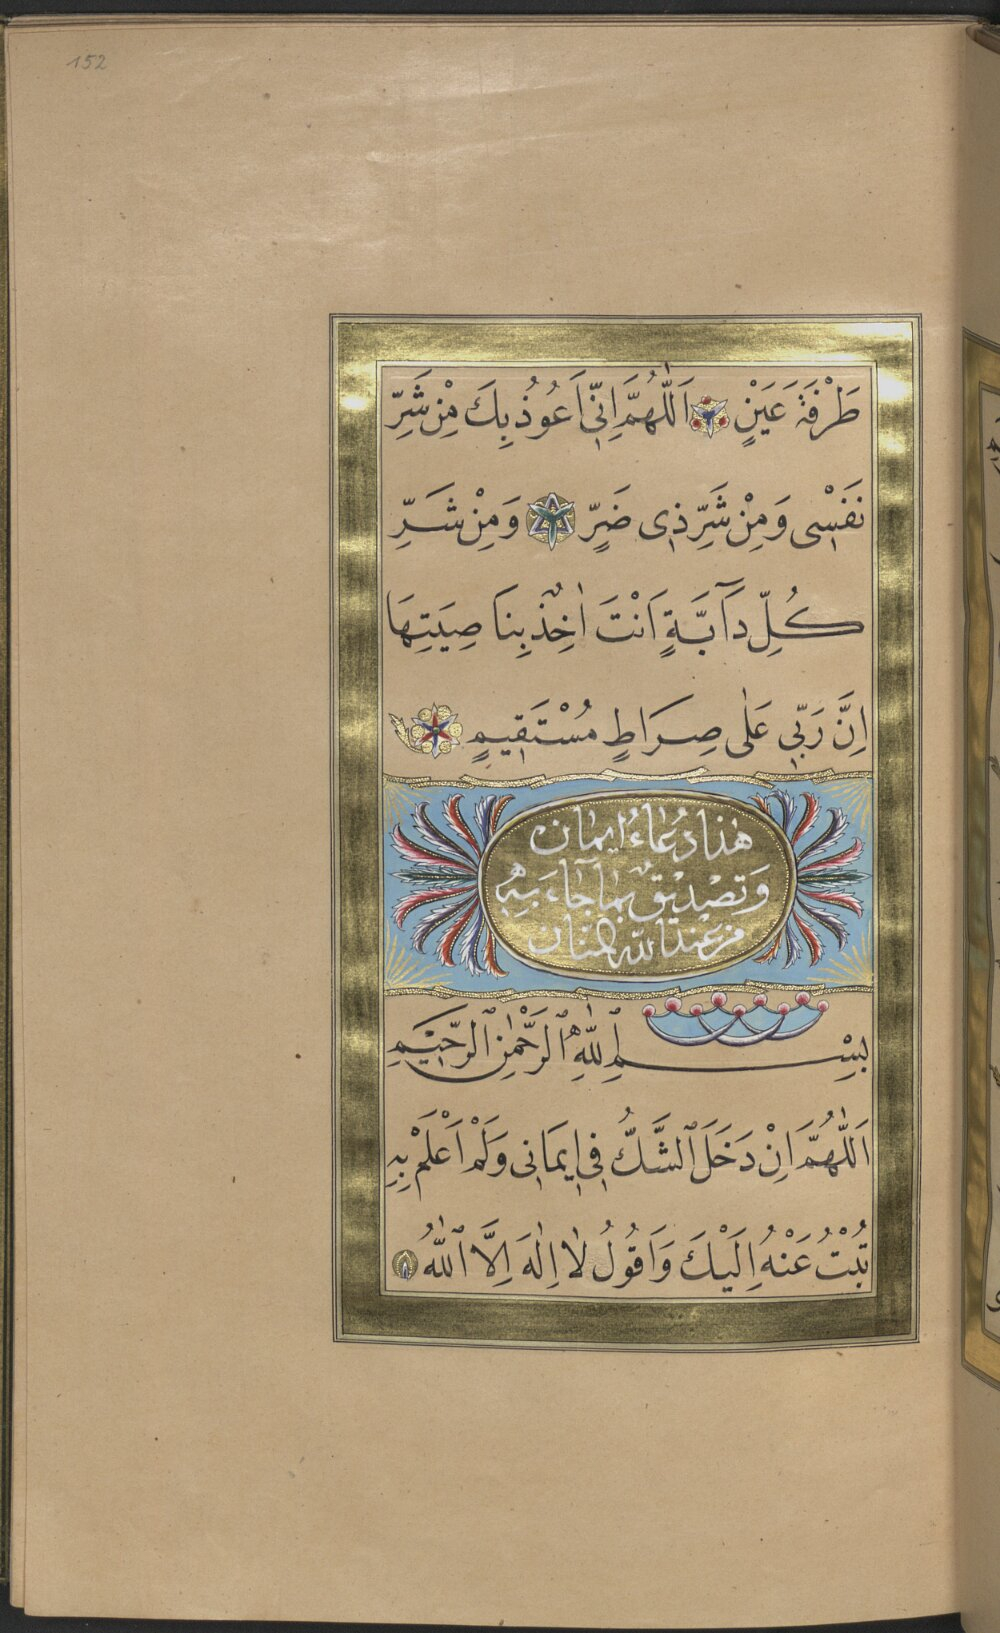 152
طَرْفَةَ عَيْنٍ اَللّٰهُمَّ اِنّٖى اَعُوذُ بِكَ مِنْ شَرِّ
نَفْسٖى وَمِنْ شَرِّ ذٖى ضَرٍّ وَمِنْ شَرِّ
كُلِّ دَآبَّةٍ اَنْتَ اٰخِذٌ بِنَا صِيَتِهَا
اِنَّ رَبّٖى عَلٰى صِرَاطٍ مُسْتَقٖيمٍ
هٰذَا دُعَاءُ ايمان
وَتَصْدٖيقٌ بِمَا جَٓاءَ بِهٖ
مِنْ عِنْدِ اللّٰه المنان
بِسْمِ ٱللّٰهِ ٱلرَّحْمٰنِ ٱلرَّحٖيمِ
اَللّٰهُمَّ اِنْ دَخَلَ ٱلشَّكُّ فٖى اٖيمَانٖى وَلَمْ اَعْلَمْ بِهٖ
تُبْتُ عَنْهُ اِلَيْكَ وَاَقُولُ لٰا اِلٰهَ اِلَّا ٱللّٰهُ